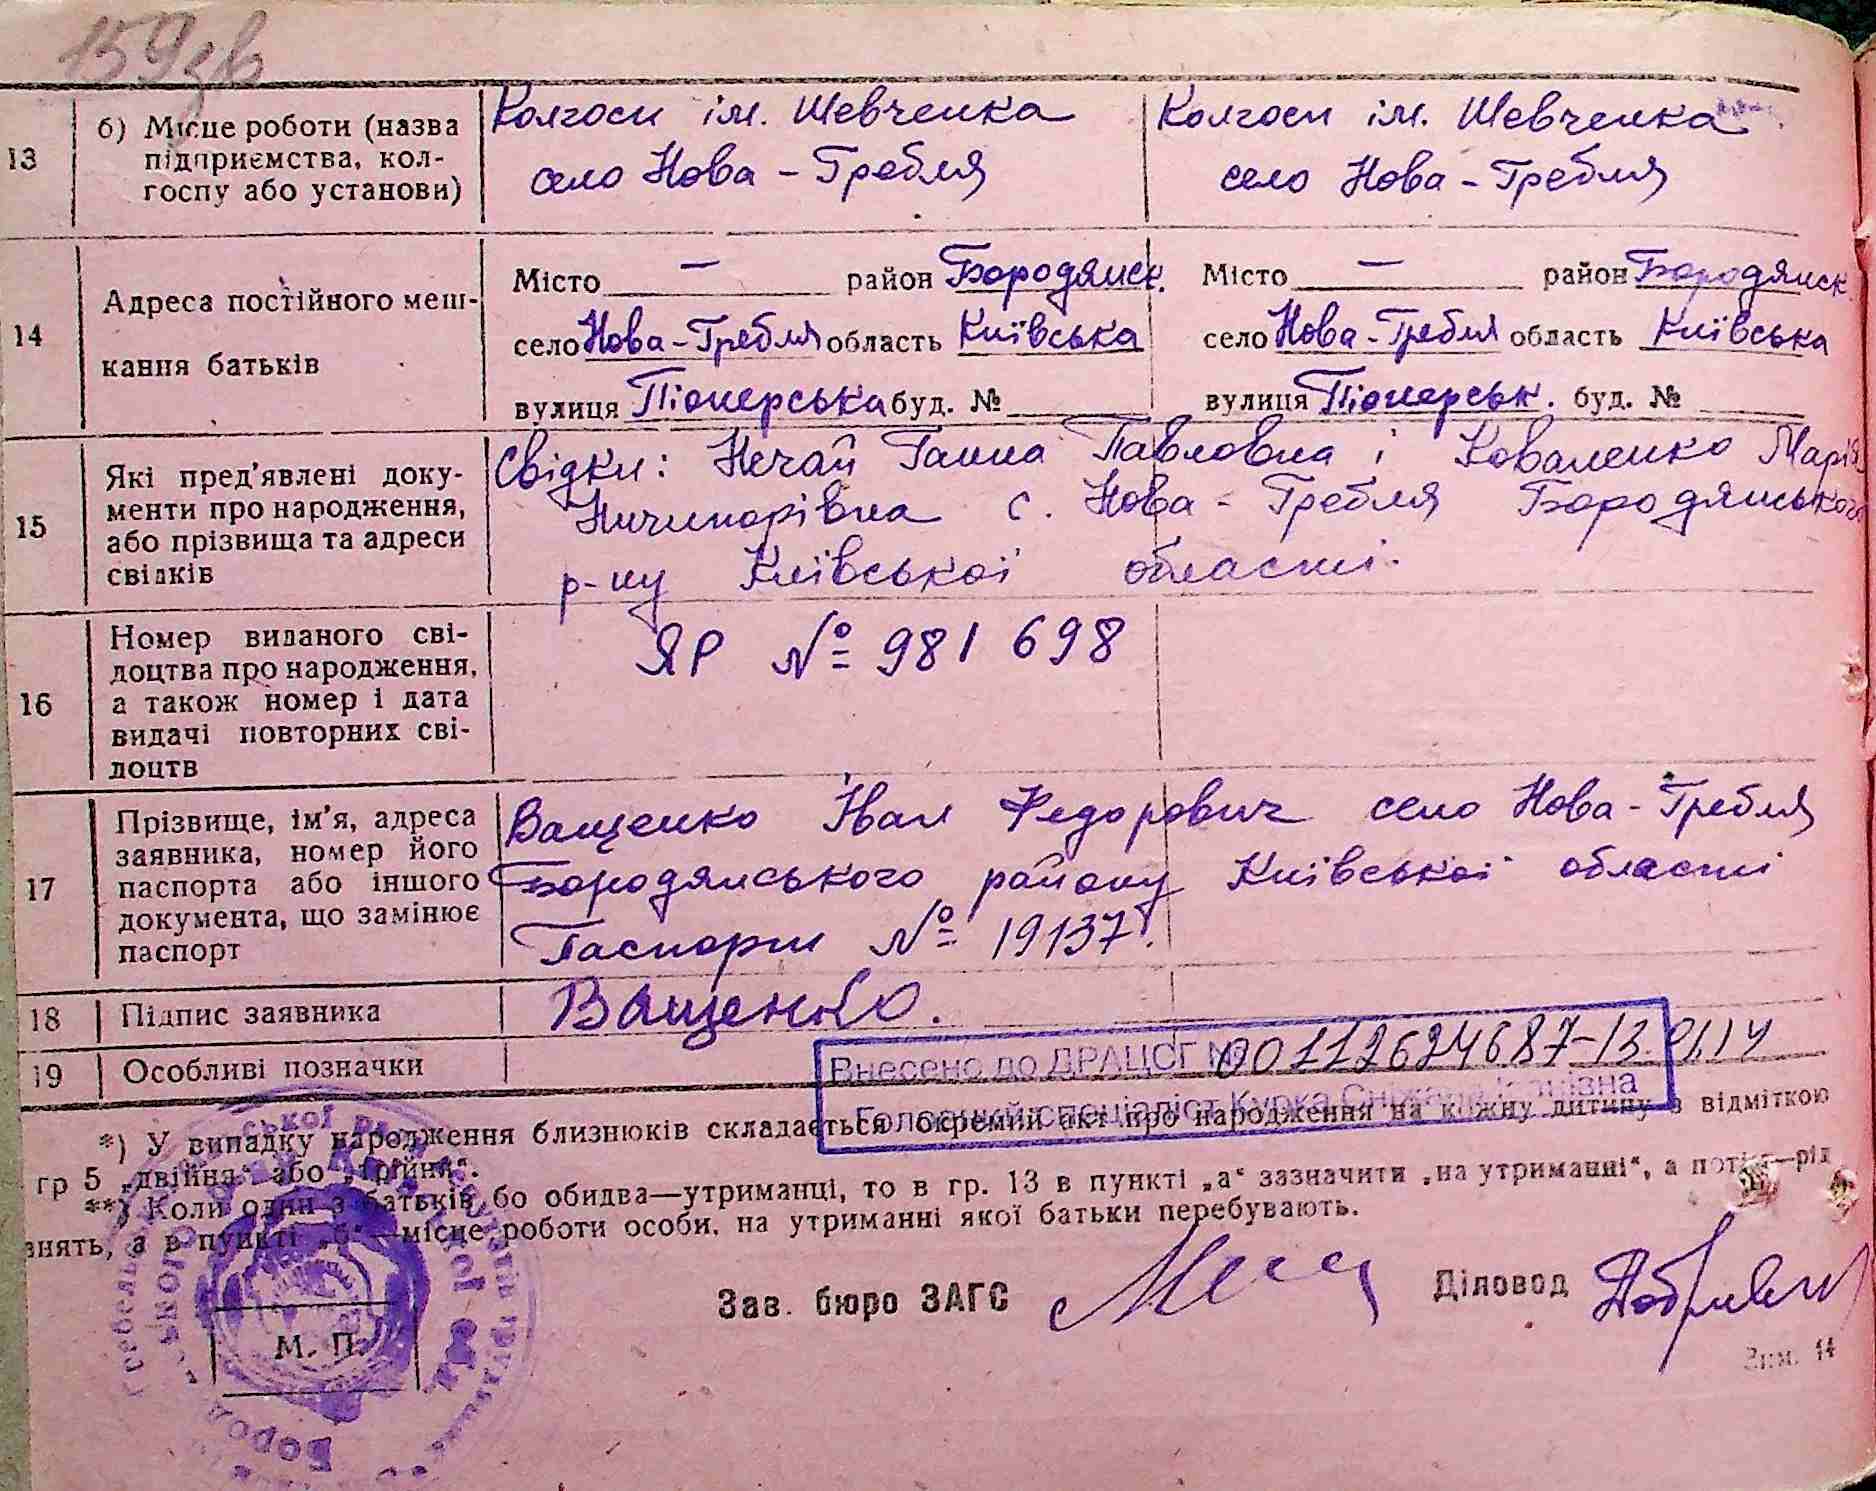 159зв
13 б) Місце роботи (назва Колгосп ім. Шевченка Колгосп ім. Шевченка
підприємства, кол-
госпу або установи) село Нова-Гребля село Нова-Гребля
Місто — район Бородянск. Місто — район Бородянск
14 Адреса постійного меш-
кання батьків
село Нова-Гребля область Київська село Нова-Гребля область Київська
вулиця Піонерська буд. № вулиця Піонерськ. буд. №
15 Які пред'явлені доку-
менти про народження,
або прізвища та адреси
свідків
Свідки: Нечай Ганна Павловна і Коваленко Марія
Ничипорівна с. Нова-Гребля Бородянського
р-ну Київської області.
16 Номер виданого сві-
доцтва про народження,
а також номер і дата
видачі повторних сві-
доцтв
ЯР № 981698
17 Прізвище, ім'я, адреса
заявника, номер його
паспорта або іншого
документа, що замінює
паспорт
Ващенко Іван Федорович село Нова-Гребля
Бородянського району Київської області
Паспорт № 19137.
18 Підпис заявника Ващенко.
19 Особливі позначки
Внесено до ДРАЦСГ № 00112624687-13.01.14
Головний спеціаліст Курка Сніжана Іванівна
*) У випадку народження близнюків складається окремий акт про народження на кожну дитину з відміткою
гр 5 „двійня“ або „трійня“.
**) Коли один з батьків бо обидва—утриманці, то в гр. 13 в пункті „а“ зазначити „на утриманні“, а потім—рід
знять, а в пункті „б“—місце роботи особи, на утриманні якої батьки перебувають.
Зав. бюро ЗАГС Діловод
М. П.
Зим. 14